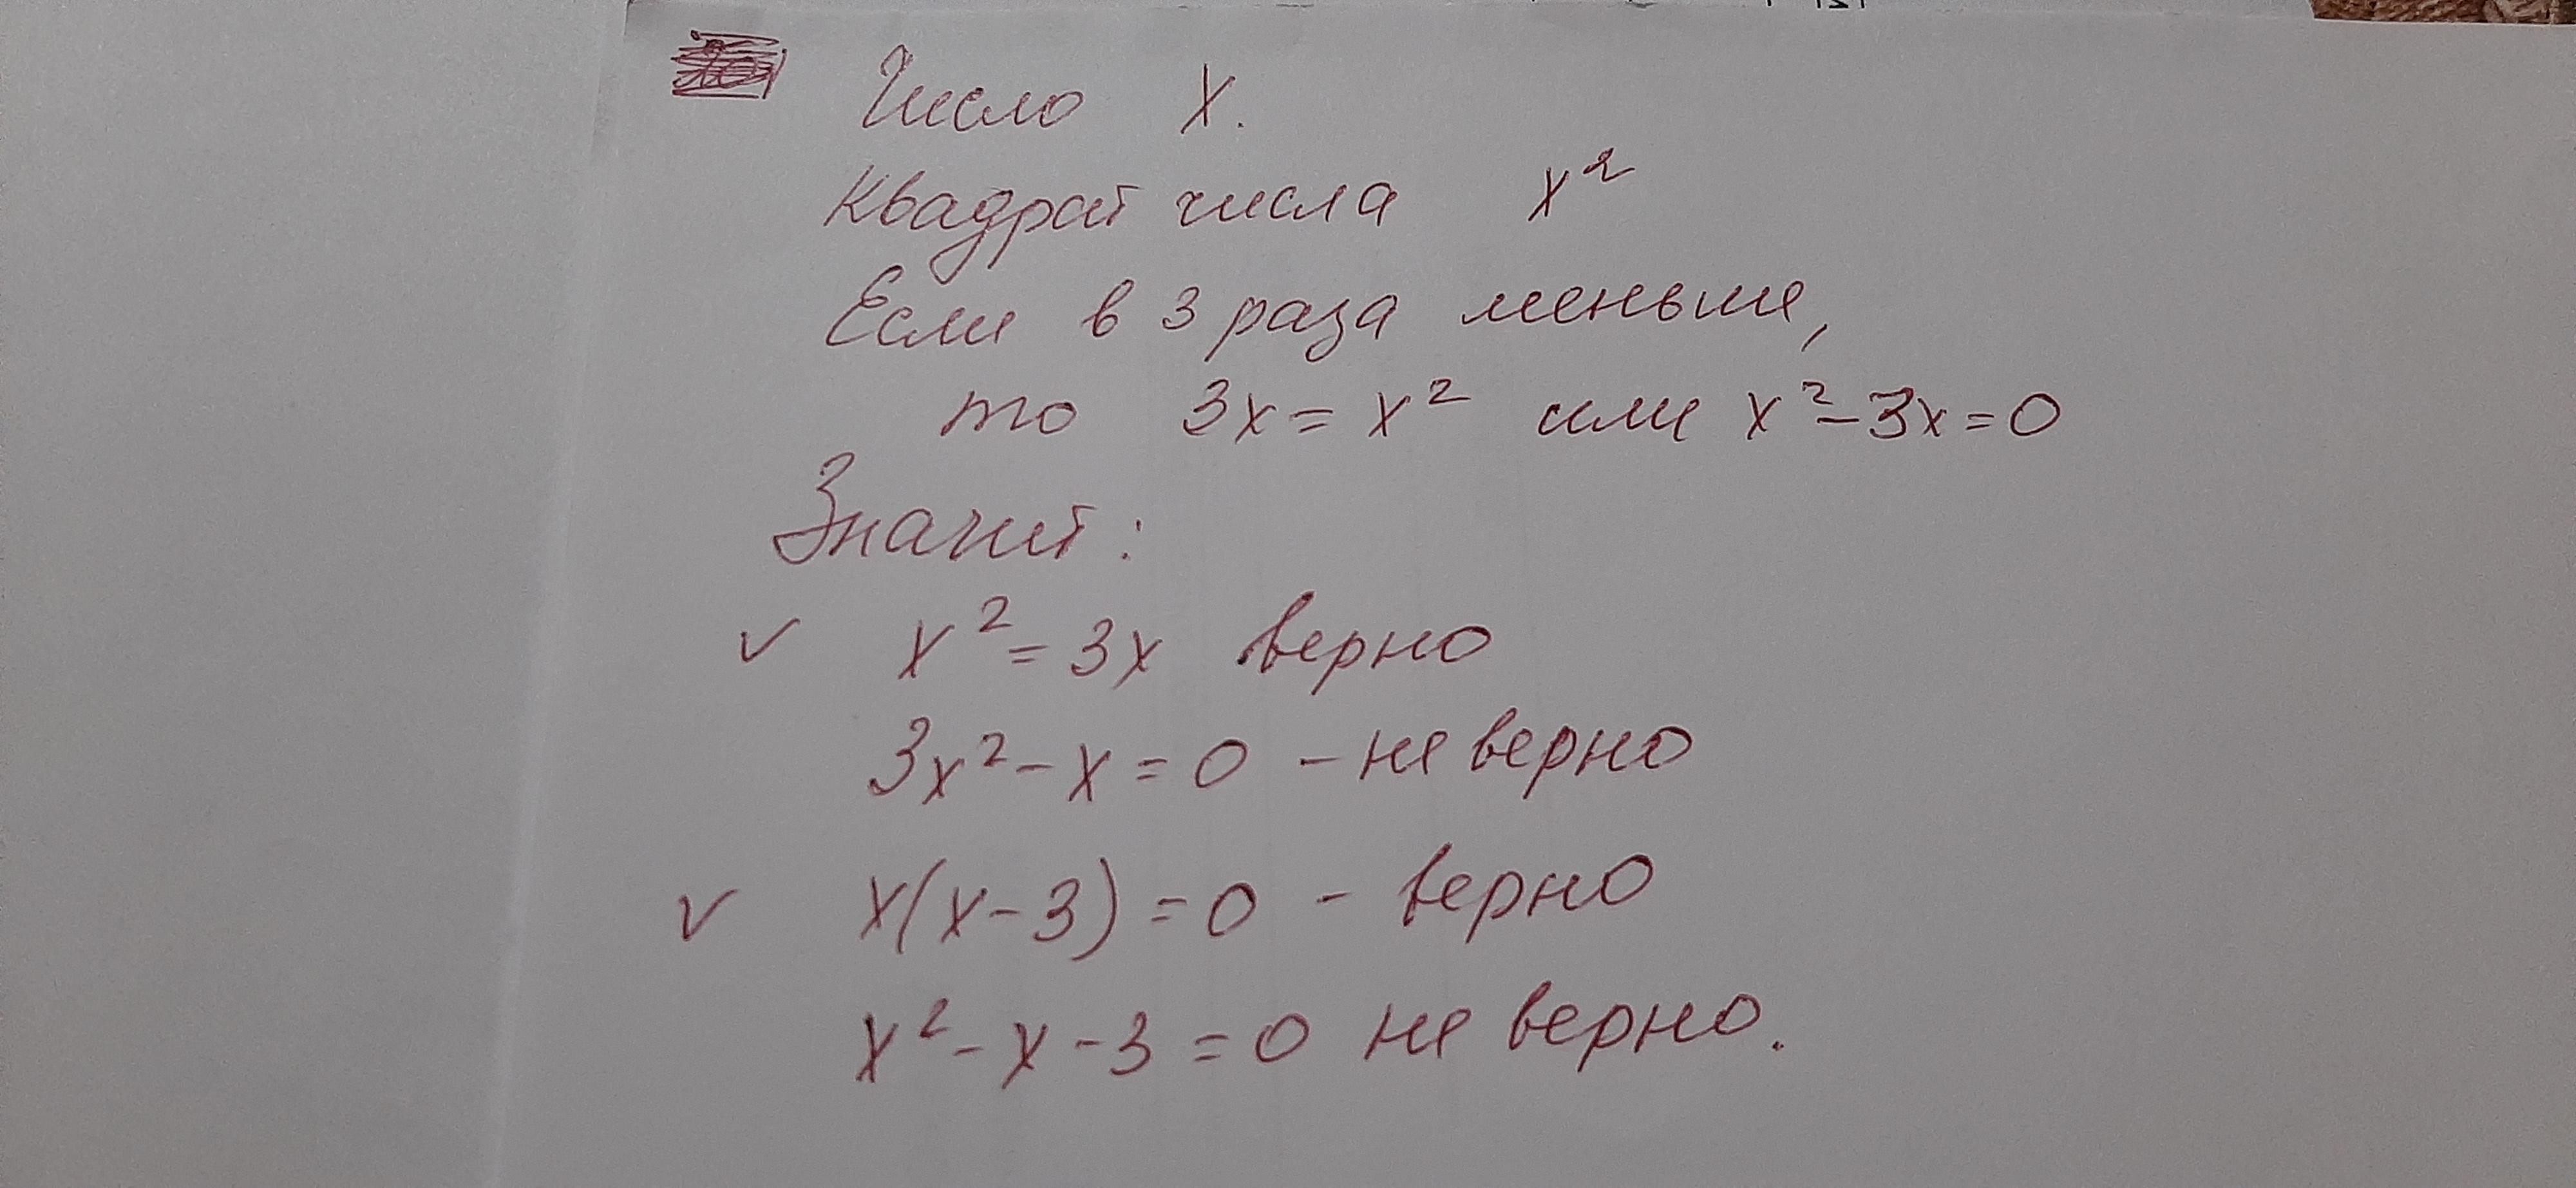 Число x.
Квадрат числа x²
Если в 3 раза меньше,
то 3x = x² или x² - 3x = 0
Значит:
✓ x² = 3x верно
3x² - x = 0 - не верно
✓ x(x - 3) = 0 - верно
x² - x - 3 = 0 не верно.